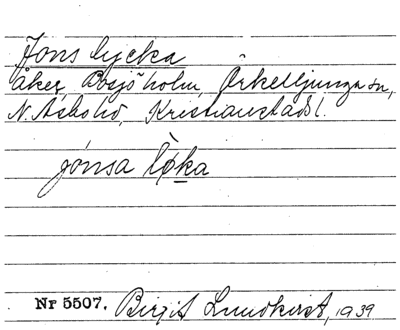 Jons lycka
åker, Bosjöholm, Örkelljunga sn,
N. Åsbohd, Kristianstads l.
jónsa lø̀ka
Nr 5507. Birgit Lundkvist, 1939